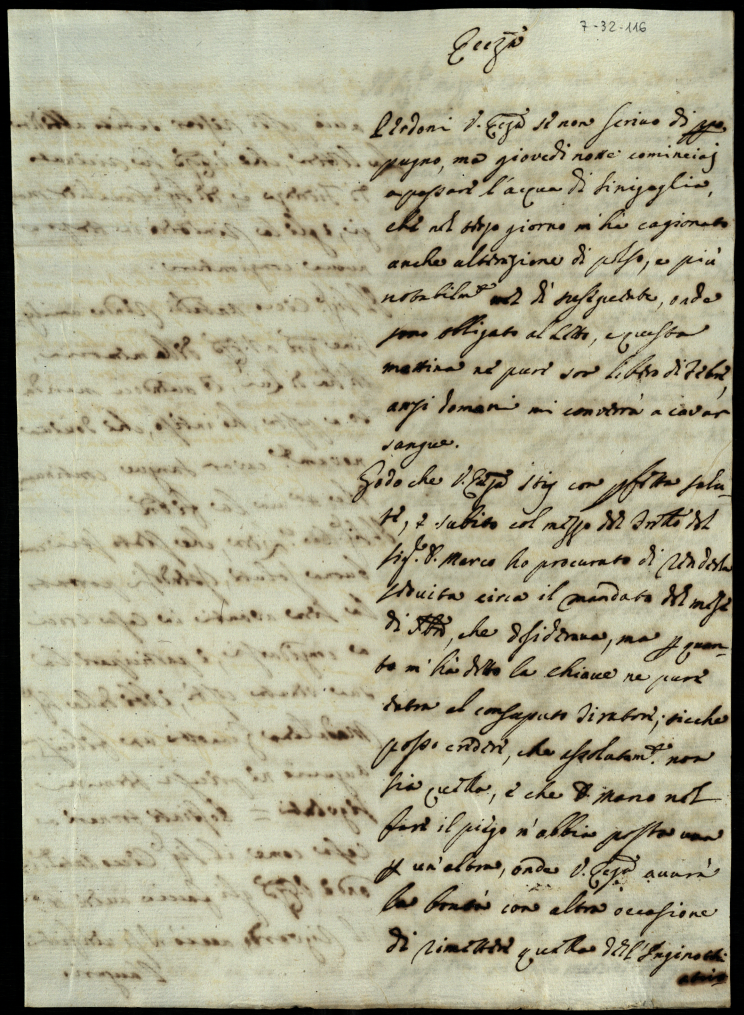 7-32-116
Ecc.za
Perdoni V. Ecc.za se non scrivo di pro
pugno, ma giovedi notte cominciaj
a passare l'acqua di Sinigaglia,
che nel terzo giorno m'ha cagionato
anche alterazione di polso, e più
notabilm.te nel dì susseguente, onde
sono obligato al letto, e questa
mattina ne pure son libero di febre,
anzi domani mi converrà a cavar
sangue.
Godo che V. Ecc.za stij con pfetta salu-
te, e subito col mezzo del fratello del
Sig.r D. Marco ho procurato di renderla
servita circa il mandato del mese
di che desiderava, ma p quan-
to m'ha detto la chiave ne pure
entra al consaputo tiratore; sicche
posso credere, che assolutam.te non
sia quella, e che D. Marco nel
fare il piego n'abbia posta una
p un'altra, onde V. Ecc.za avurà
la bontà con altra occasione
di rimettere quella dell'Inginochi
atoio